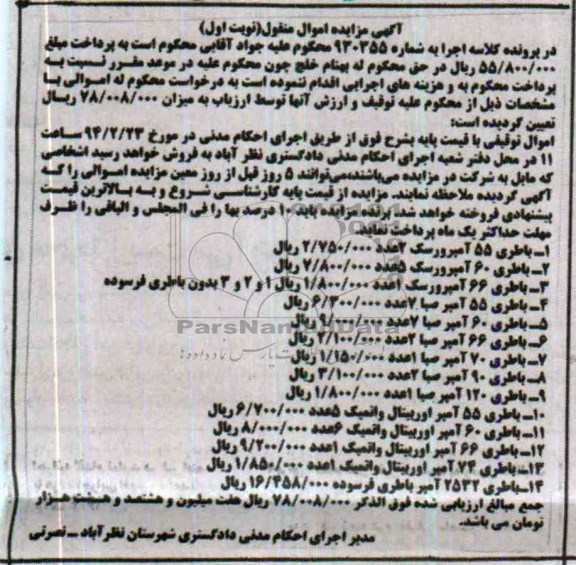 آگهی مزایده اموال منقول(نوبت اول)
در پرونده کلاسه اجرا به شماره ۹۳۰۳۵۵ محکوم علیه جواد آقایی محکوم است به پرداخت مبلغ
۵۵/۸۰۰/۰۰۰ ریال در حق محکوم له بهنام خلج چون محکوم علیه در موعد مقرر نسبت به
پرداخت محکوم به و هزینه های اجرایی اقدام ننموده است به درخواست محکوم له اموالی با
مشخصات ذیل از محکوم علیه توقیف و ارزش آنها توسط ارزیاب به میزان ۷۸/۰۰۸/۰۰۰ ریال
تعیین گردیده است:
اموال توقیفی با قیمت پایه بشرح فوق از طریق اجرای احکام مدنی در مورخ ۹۴/۲/۲۳ ساعت
۱۱ در محل دفتر شعبه اجرای احکام مدنی دادگستری نظر آباد به فروش خواهد رسید اشخاصی
که مایل به شرکت در مزایده می‌باشندمی‌توانند ۵ روز قبل از روز معین مزایده اموالی را که
آگهی گردیده ملاحظه نمایند. مزایده از قیمت پایه کارشناسی شروع و به بالاترین قیمت
پیشنهادی فروخته خواهد شد. برنده مزایده باید ۱۰ درصد بها را فی المجلس و الباقی را ظرف
مهلت حداکثر یک ماه پرداخت نماید.
۱ــ باطری ۵۵ آمپرورسک ۲عدد ۲/۷۵۰/۰۰۰ ریال
۲ــ باطری ۶۰ آمپرورسک ۵عدد ۷/۸۰۰/۰۰۰ ریال
۳ــ باطری ۶۶ آمپرورسک ۱عدد ۱/۸۰۰/۰۰۰ ریال ۱ و ۲ و ۳ بدون باطری فرسوده
۴ــ باطری ۵۵ آمپر صبا ۷عدد ۶/۳۰۰/۰۰۰ ریال
۵ــ باطری ۶۰ آمپر صبا ۷عدد ریال
۶ــ باطری ۶۶ آمپر صبا ۲عدد ۲/۱۰۰/۰۰۰ ریال
۷ــ باطری ۷۰ آمپر صبا ۱عدد ۱/۱۵۰/۰۰۰ ریال
۸ــ باطری ۹۰ آمپر صبا ۲عدد ۳/۱۰۰/۰۰۰ ریال
۹ــ باطری ۱۲۰ آمپر صبا ۱عدد ۱/۸۰۰/۰۰۰ ریال
۱۰ــ باطری ۵۵ آمپر اوربیتال واتمیک ۵عدد ۶/۷۰۰/۰۰۰ ریال
۱۱ــ باطری ۶۰ آمپر اوربیتال واتمیک ۶عدد ۸/۰۰۰/۰۰۰ ریال
۱۲ــ باطری ۶۶ آمپر اوربیتال واتمیک ۹/۲۰۰/۰۰۰ ریال
۱۳ــ باطری ۷۴ آمپر اوربیتال واتمیک ۱عدد ۱/۸۵۰/۰۰۰ ریال
۱۴ــ باطری ۲۵۳۲ آمپر باطری فرسوده ۱۶/۴۵۸/۰۰۰ ریال
جمع مبالغ ارزیابی شده فوق الذکر ۷۸/۰۰۸/۰۰۰ ریال هفت میلیون و هشتصد و هشت هزار
تومان می باشد.
مدیر اجرای احکام مدنی دادگستری شهرستان نظرآباد ــ نصرتی
ParsNamadData